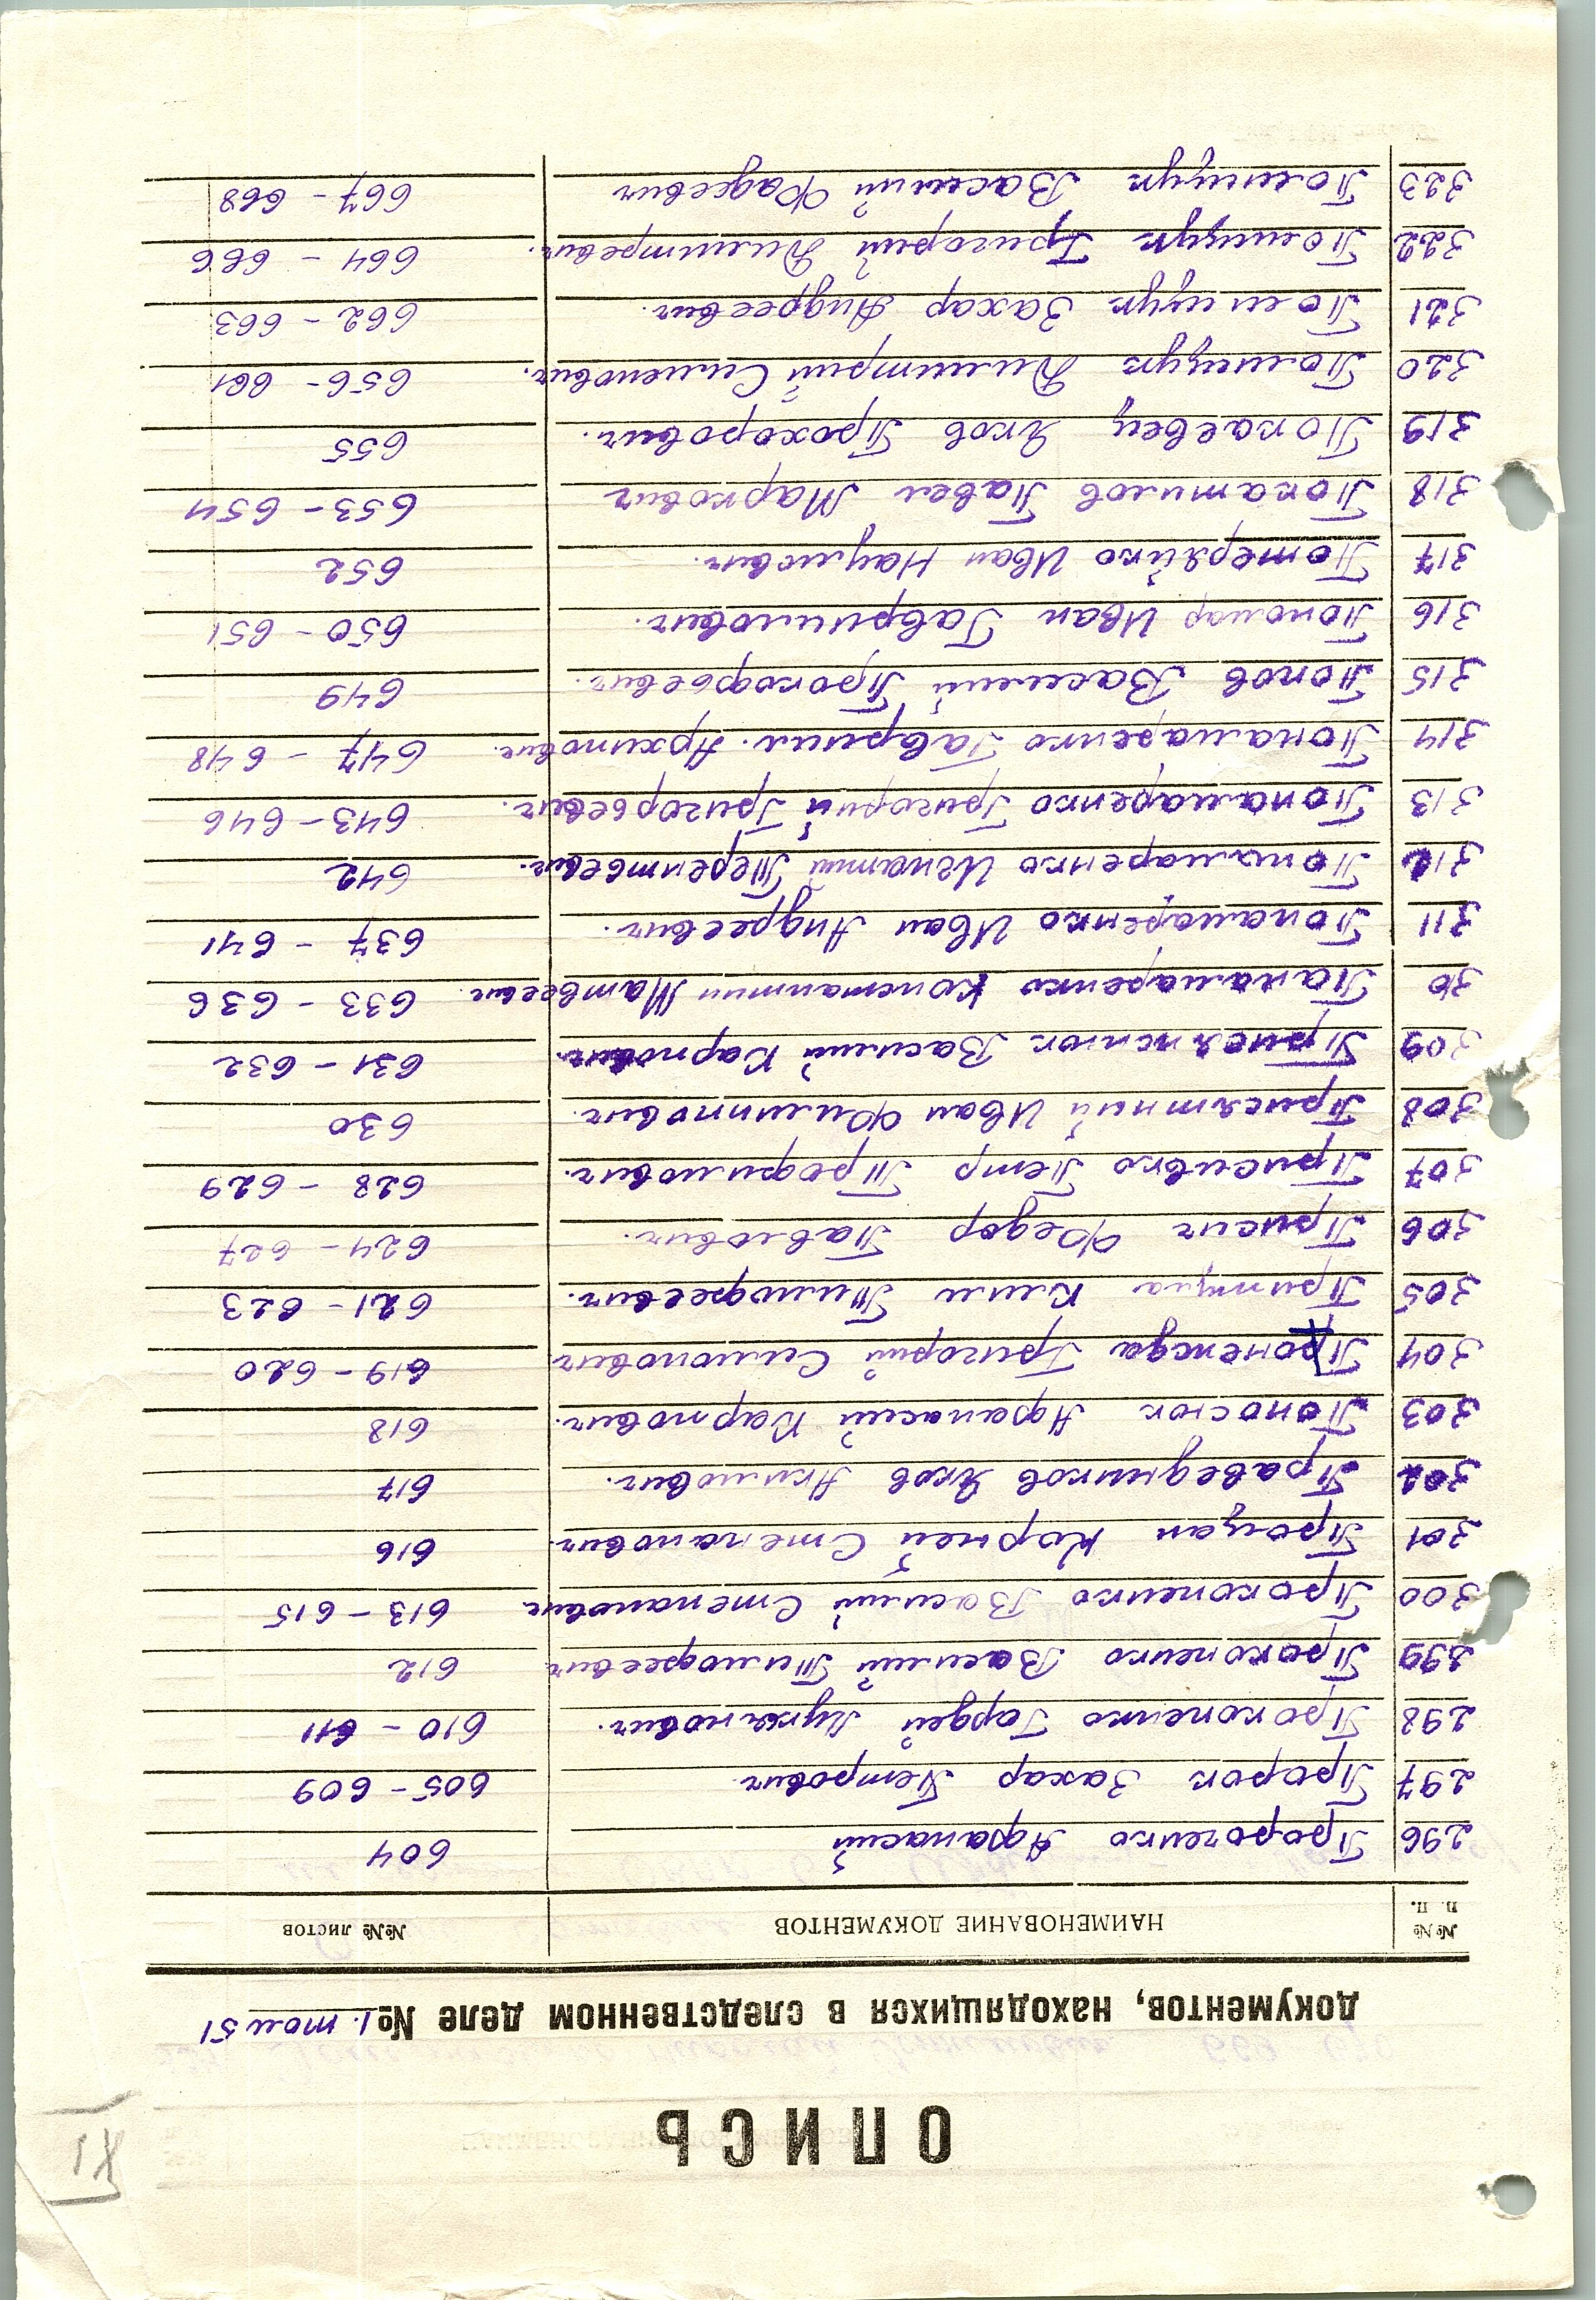 XI
ОПИСЬ
документов, находящихся в следственном деле № 1. том 51
№№ п. п. НАИМЕНОВАНИЕ ДОКУМЕНТОВ №№ листов
296 Пророченко Афанасий 604
297 Пророк Захар Петрович 605-609
298 Прокопенко Гордей Лукьянович. 610 - 611
299 Прокопенко Василий Тимофеевич 612
300 Прокопенко Василий Степанович 613 - 615
301 Процан Корней Степанович. 616
302 Праведников Яков Акимович. 617
303 Поносюк Афанасий Карпович. 618
304 Григорий Симонович 619 - 620
305 Припула Клим Тимофеевич. 621 - 623
306 Присич Федор Павлович. 624 - 627
307 Присивко Петр Трофимович. 628 - 629
308 Присятный Иван Филиппович. 630
309 Присяжнюк Василий Карпович. 631 - 632
310 Панамаренко Константин Матвеевич. 633 - 636
311 Понамаренко Иван Андреевич. 637 - 641
312 Понамаренко Игнатий Терентьевич. 642
313 Понамаренко Григорий Григорьевич. 643-646
314 Понамаренко Гаврил. Архипович. 647 - 648
315 Попов Василий Прокофьевич. 649
316 Пономар Иван Гаврилович. 650 - 651
317 Потеряйко Иван Наумович. 652
318 Покатилов Павел Маркович 653 - 654
319 Покаевец Яков Прохорович. 655
320 Полищук Дмитрий Сименович. 656 - 661
321 Полищук Захар Андреевич. 662 - 663
322 Полищук Григорий Дмитревич. 664 - 666
323 Полищук Василий Фадеевич 667 - 668